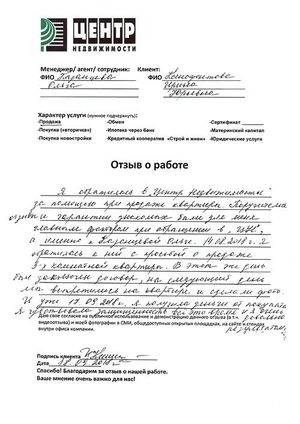 ЦЕНТР
НЕДВИЖИМОСТИ
Менеджер/ агент/ сотрудник: Клиент:
ФИО Каранцева ФИО Ксенофонтова
Ольга Ирина
Юрьевна
Характер услуги (нужное подчеркнуть):
-Продажа -Обмен -Сертификат
-Покупка («вторичка») -Ипотека через банк -Материнский капитал
-Покупка новостройки -Кредитный кооператив «Строй и живи» -Юридические услуги
Отзыв о работе
Я обратилась в "Центр Недвижимости"
за помощью при продаже квартиры.
и гарантии были для меня
главным фактором при обращении в "ЦН",
а именно к Ольге. 14.08.2018 г. я
обратилась к ней с просьбой о продаже
3-х комнатной квартиры. В этот же день
был заключен договор, на следующий день
мы встретились на квартире и сделали фото.
И уже 17.09.2018 г. я получила деньги от покупателя.
Я чувствовала защищенность все это время и я очень
Даю свое согласие на публикование/использование и демонстрацию данного отзыва (в т.ч. довольна
видеоотзыва) и моей фотографии в СМИ, общедоступных открытых площадках, на сайте и стендах результатом.
внутри офиса компании.
Подпись клиента
Дата 18.09.2018 г.
Спасибо! Благодарим за отзыв о нашей работе.
Ваше мнение очень важно для нас!